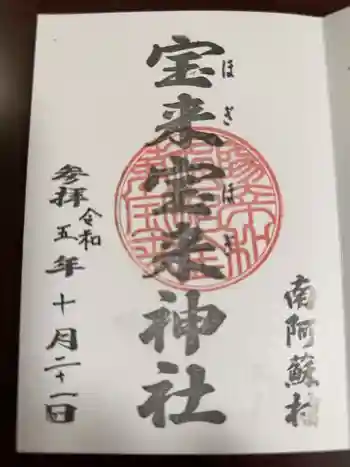 南阿蘇村
宝来宝来神社
ほぎ ほぎ
令和
参拝 五年 十月二十一日